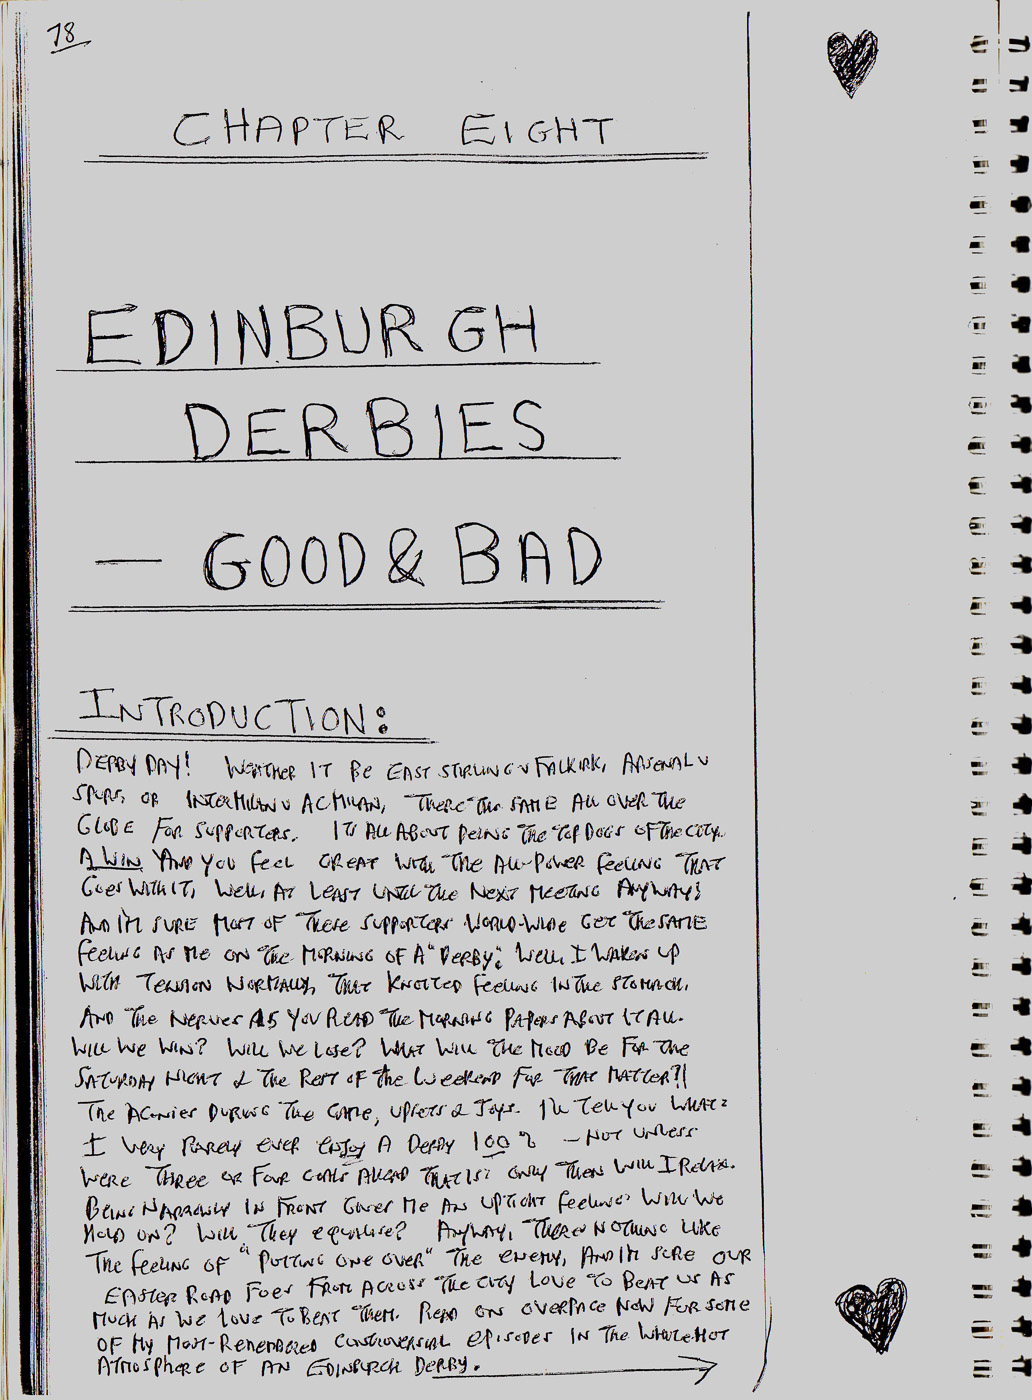 78
CHAPTER EIGHT
EDINBURGH
DERBIES
— GOOD & BAD
INTRODUCTION:
DERBY DAY! WEATHER IT BE EAST STIRLING V FALKIRK, ARSENAL V
SPURS, OR INTER MILAN V AC MILAN, THERE THE SAME ALL OVER THE
GLOBE FOR SUPPORTERS. ITS ALL ABOUT BEING THE TOP DOGS OF THE CITY.
A WIN AND YOU FEEL GREAT WITH THE ALL-POWER FEELING THAT
GOES WITH IT, WELL, AT LEAST UNTIL THE NEXT MEETING ANYWAY!
AND I'M SURE MOST OF THESE SUPPORTERS WORLD-WIDE GET THE SAME
FEELING AS ME ON THE MORNING OF A "DERBY". WELL, I WAKEN UP
WITH TENSION NORMALLY, THAT KNOTTED FEELING IN THE STOMACH.
AND THE NERVES AS YOU READ THE MORNING PAPERS ABOUT IT ALL.
WILL WE WIN? WILL WE LOSE? WHAT WILL THE MOOD BE FOR THE
SATURDAY NIGHT & THE REST OF THE WEEKEND FOR THAT MATTER?!
THE AGONIES DURING THE GAME, UPSETS & JOYS. I'LL TELL YOU WHAT:
I VERY RARELY EVER ENJOY A DERBY 100% — NOT UNLESS
WERE THREE OR FOUR GOALS AHEAD THAT IS! ONLY THEN WILL I RELAX.
BEING NARROWLY IN FRONT GIVES ME AN UPTIGHT FEELING! WILL WE
HOLD ON? WILL THEY EQUALISE? ANYWAY, THERE'S NOTHING LIKE
THE FEELING OF "PUTTING ONE OVER" THE ENEMY, AND I'M SURE OUR
EASTER ROAD FOES FROM ACROSS THE CITY LOVE TO BEAT US AS
MUCH AS WE LOVE TO BEAT THEM. READ ON OVERPAGE NOW FOR SOME
OF MY MOST-REMEMBERED CONTROVERSIAL EPISODES IN THE WHITE-HOT
ATMOSPHERE OF AN EDINBURGH DERBY.